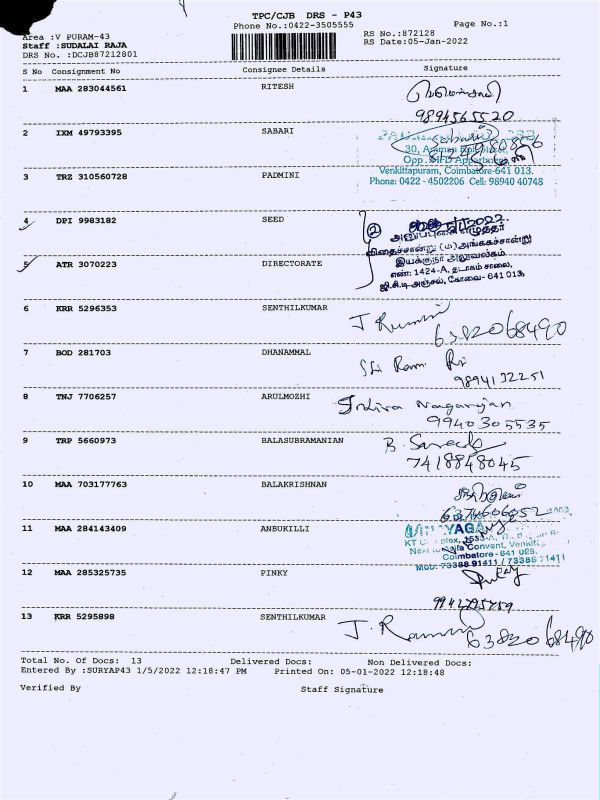 TPC/CJB DRS - P43
Phone No.:0422-3505555
Page No.:1
Area :V PURAM-43
RS No.:872128
Staff :SUDALAI RAJA
RS Date:05-Jan-2022
DRS No. :DCJB87212801
S No Consignment No Consignee Details Signature
1 MAA 283044561 RITESH
9894565520
2 IXM 49793395 SABARI
Opp.
3 TRZ 310560728 PADMINI
Venkittapuram, Coimbatore-641 013.
Phone: 0422 - 4502206 Cell: 98940 40748
4 DPI 9983182 SEED
2022.
அலுவலகம்
எண்: 1424-A, தடாகம் சாலை,
ஜி.சி.டி அஞ்சல், கோவை - 641 013.
5 ATR 3070223 DIRECTORATE
6 KRR 5296353 SENTHILKUMAR
6382068490
7 BOD 281703 DHANAMMAL
Sri Ram
9894132251
8 TNJ 7706257 ARULMOZHI
Indira Nagarajan
9940305535
9 TRP 5660973 BALASUBRAMANIAN
B.
7418848045
10 MAA 703177763 BALAKRISHNAN
6374606052
11 MAA 284143409 ANBUKILLI
Convent,
Coimbatore - 641 025.
Mob: 73388 91411 / 73388 71411
12 MAA 285325735 PINKY
13 KRR 5295898 SENTHILKUMAR
6382068490
Total No. Of Docs: 13 Delivered Docs: Non Delivered Docs:
Entered By :SURYAP43 1/5/2022 12:18:47 PM Printed On: 05-01-2022 12:18:48
Verified By Staff Signature